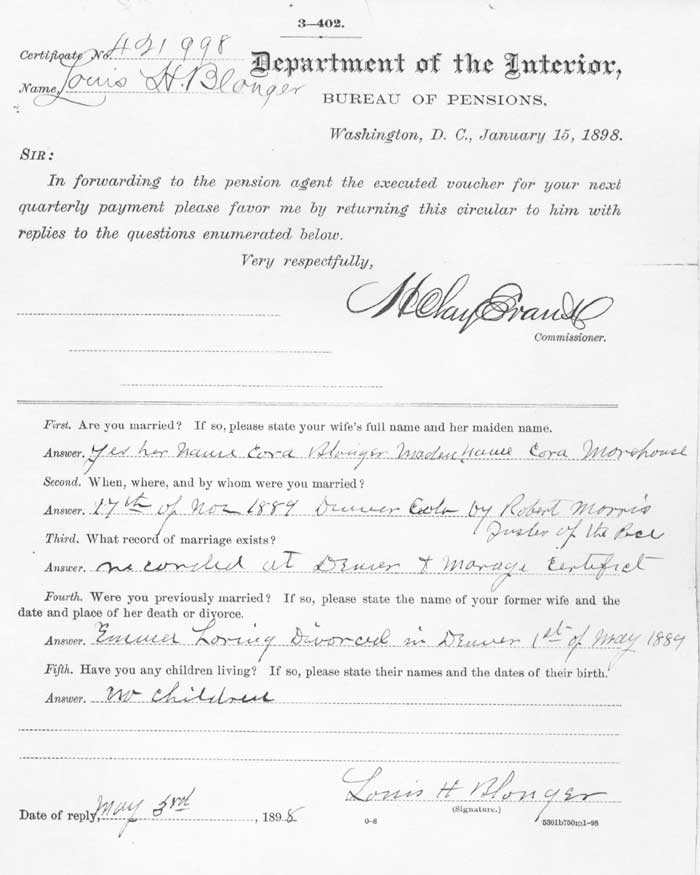 3—402.
Certificate No. 421998
Department of the Interior,
Name, Louis H. Blonger
BUREAU OF PENSIONS,
Washington, D. C., January 15, 1898.
SIR:
In forwarding to the pension agent the executed voucher for your next
quarterly payment please favor me by returning this circular to him with
replies to the questions enumerated below.
Very respectfully,
H Clay Evans
Commissioner.
First. Are you married? If so, please state your wife's full name and her maiden name.
Answer. Yes her name Cora Blonger Maden name Cora Morehouse
Second. When, where, and by whom were you married?
Answer. 17th of Nov 1889 Denver Colo by Robert Morris
Justes of the Pece
Third. What record of marriage exists?
Answer. recorded at Denver & Marage Certifict
Fourth. Were you previously married? If so, please state the name of your former wife and the
date and place of her death or divorce.
Answer. Emmer Loring Divorced in Denver 1st of May 1889
Fifth. Have you any children living? If so, please state their names and the dates of their birth.
Answer. No children
Louis H Blonger
(Signature.)
Date of reply, May 3rd, 1898
0-8
5301b750m1-98